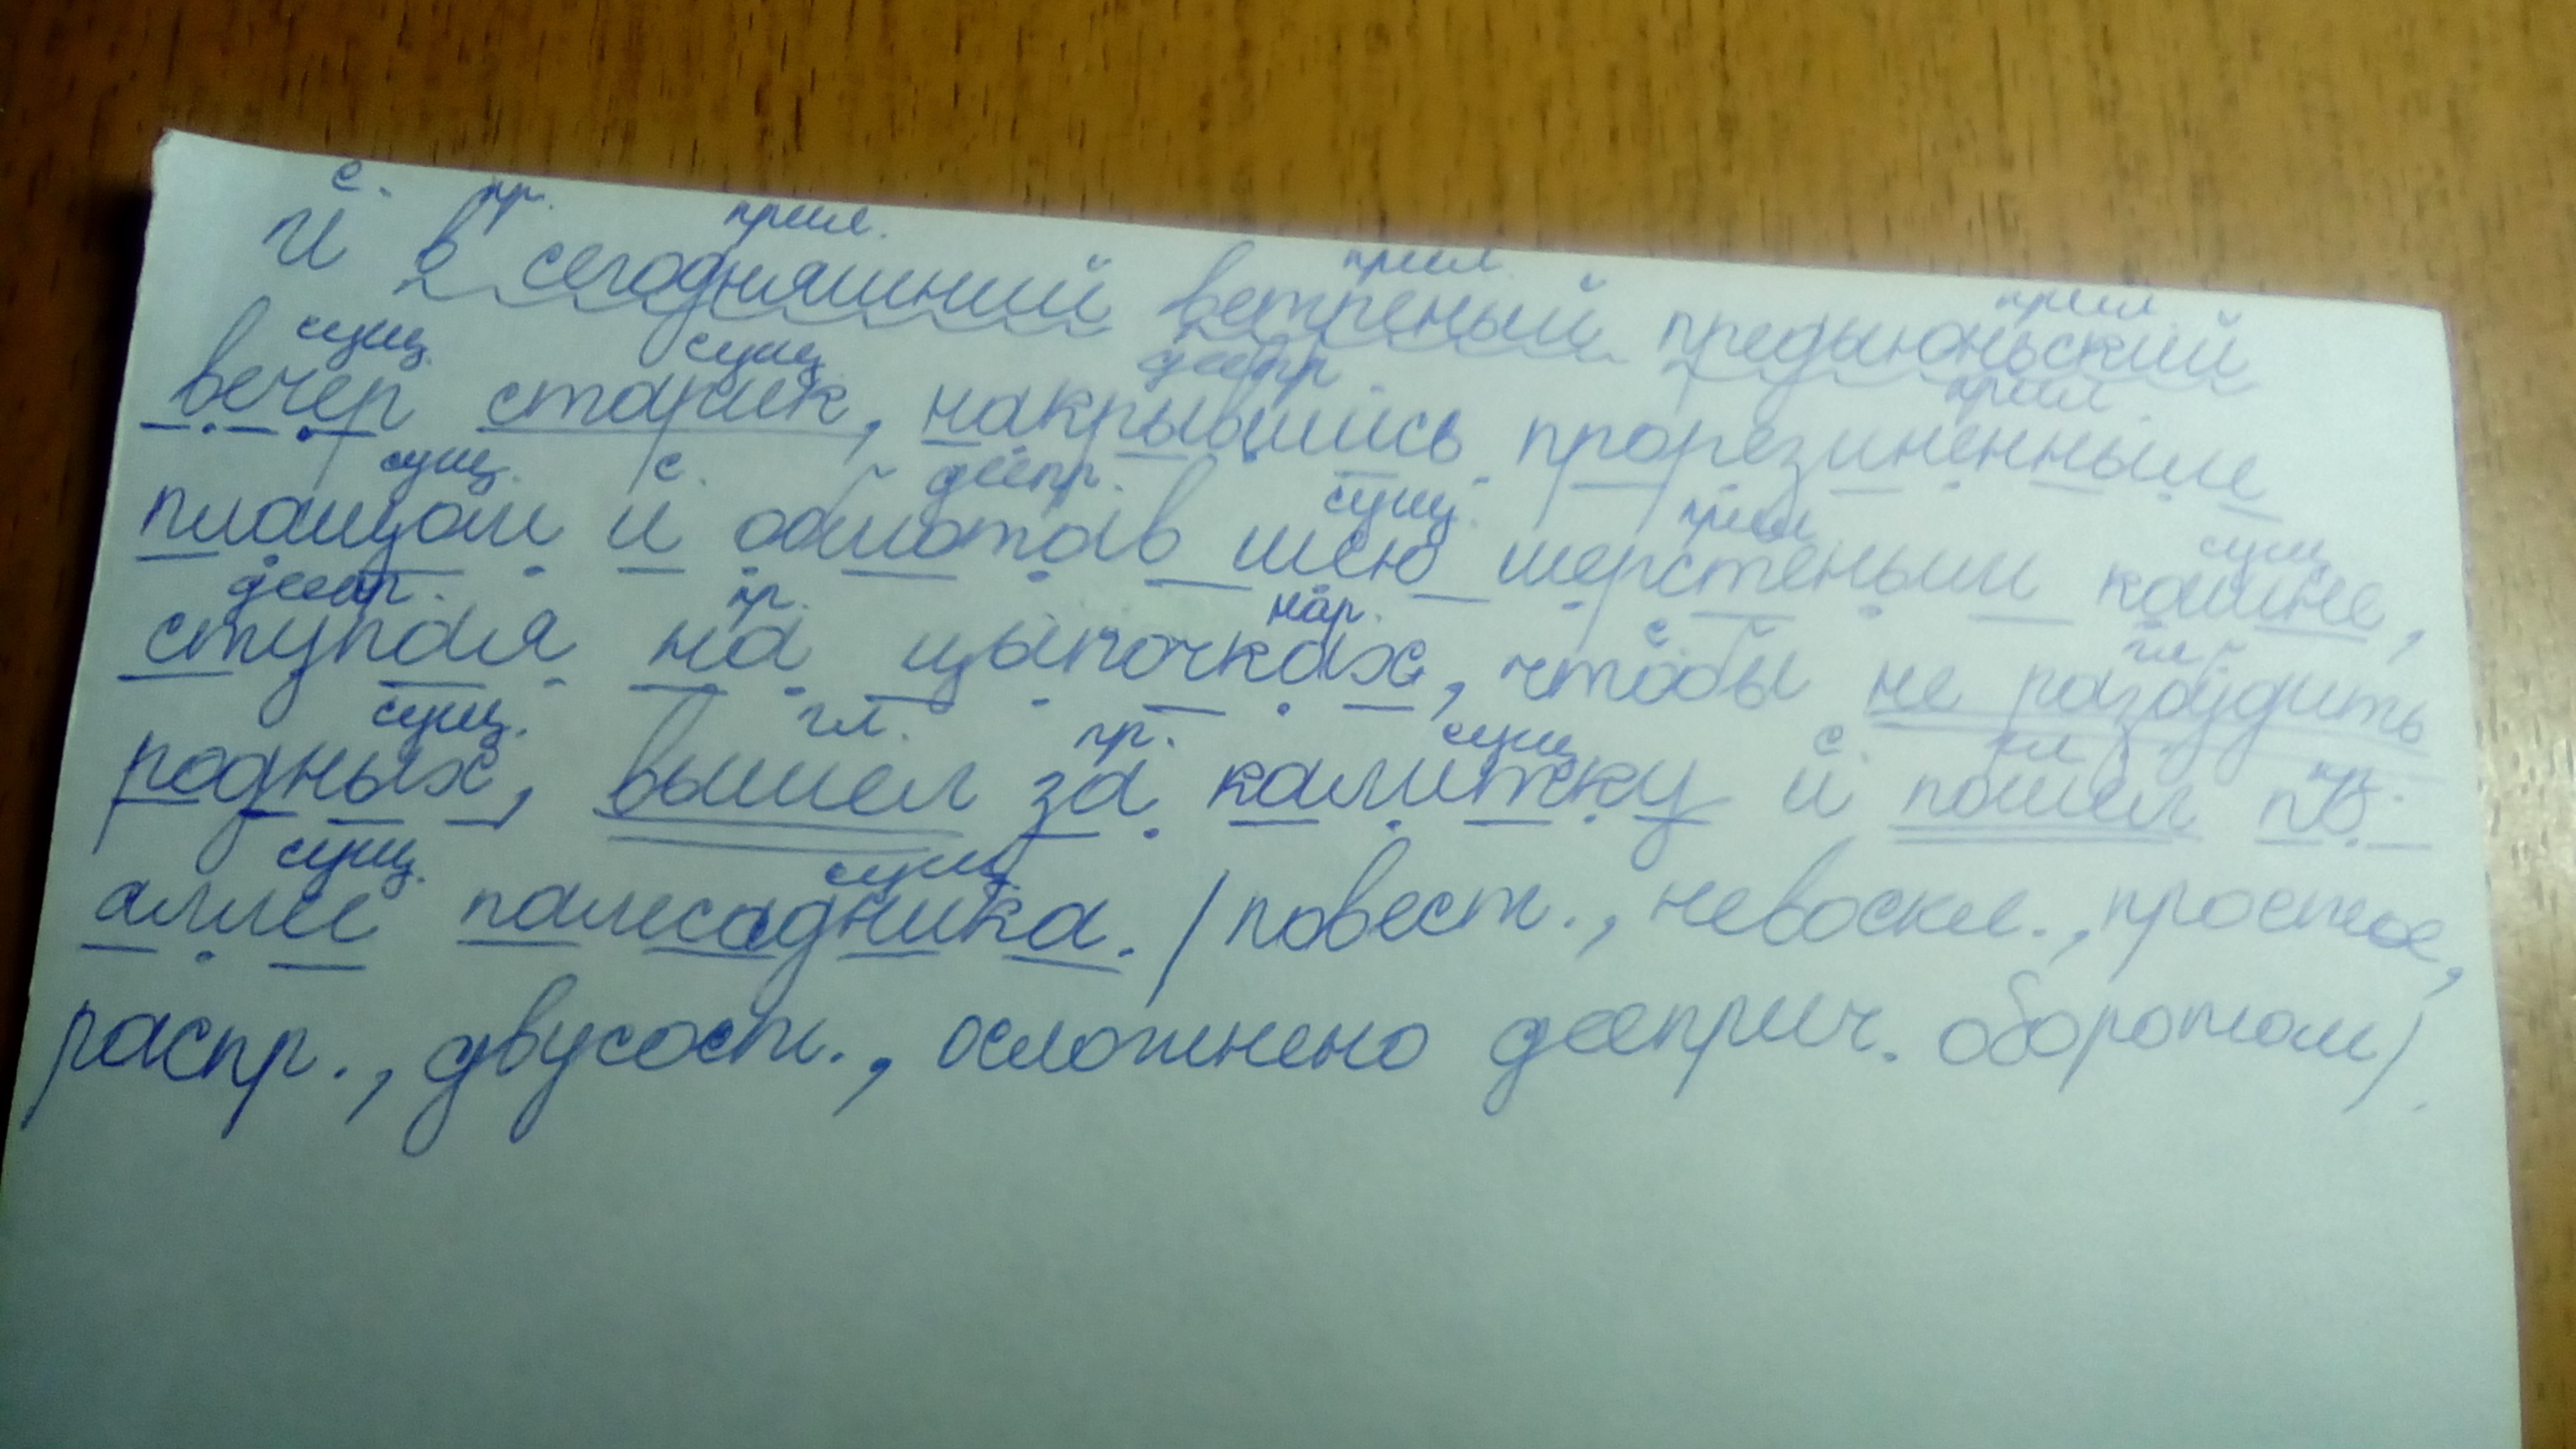 с. пр. прил. прил. прил.
И в сегодняшний ветреный предыюньский
сущ. сущ. деепр. прил.
вечер старик, накрывшись прорезиненным
сущ. с. деепр. сущ. прил. сущ.
плащом и обмотав шею шерстеным кашне,
деепр. пр. нар. с. гл.
ступая на цыпочках, чтобы не разбудить
сущ. гл. пр. сущ. с. гл. пр.
родных, вышел за калитку и пошел по
сущ. сущ.
аллее палисадника. (повест., невоскл., простое,
распр., двусост., осложнено дееприч. оборотом).